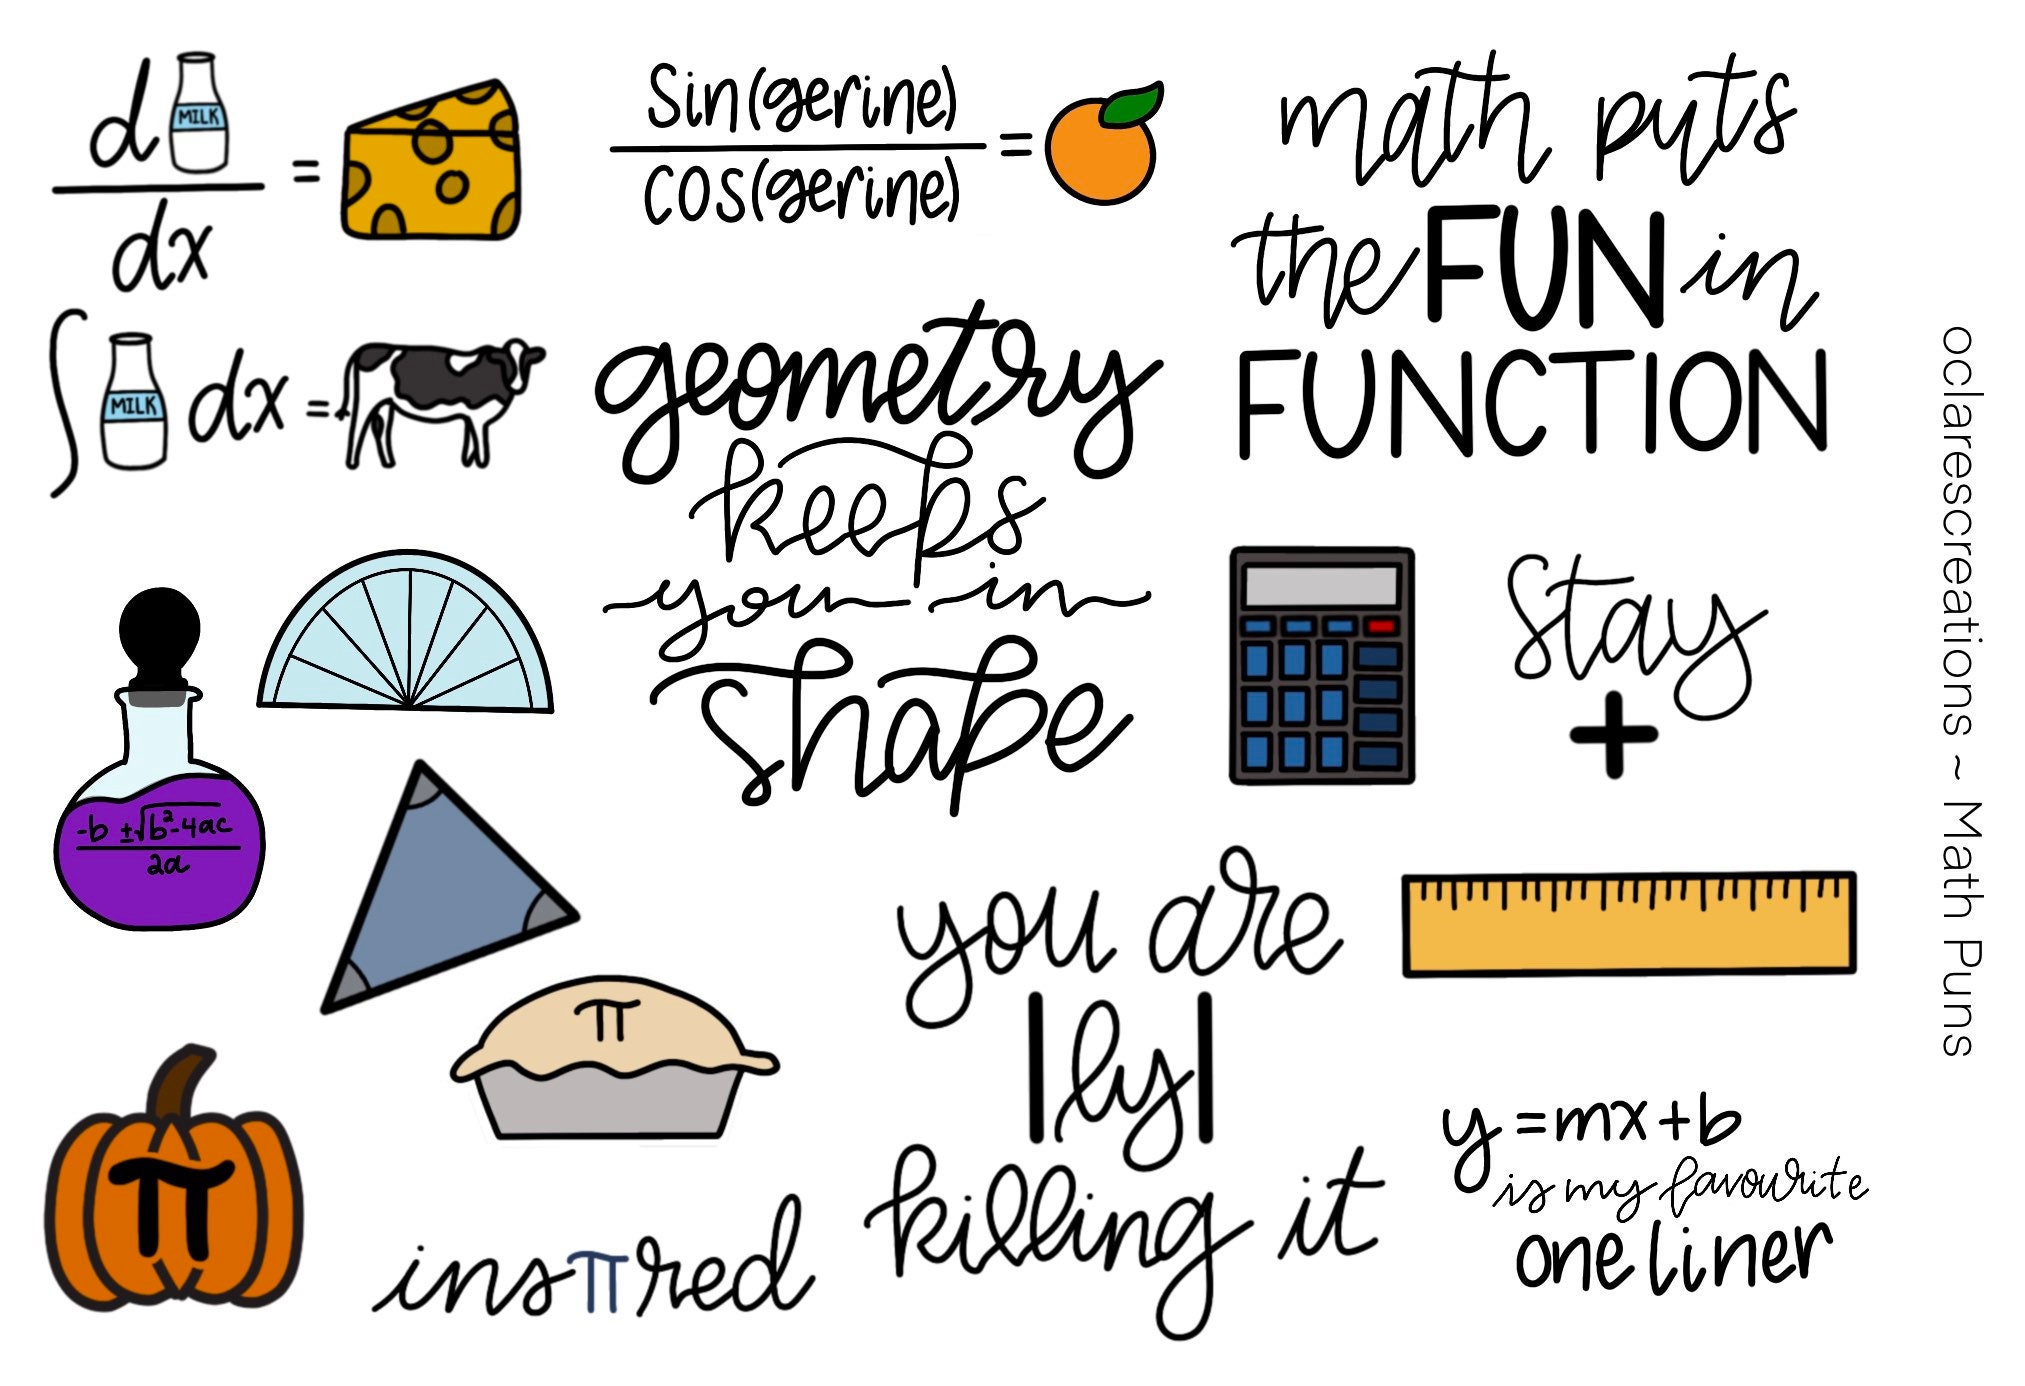 d MILK
dx
=
∫ MILK dx =
Sin(gerine)
cos(gerine)
=
math puts
the FUN in
FUNCTION
geometry
keeps
you in
shape
stay
+
-b ±√b²-4ac
2a
π
π
insπred
you are
|ly|
killing it
y=mx+b
is my favourite
one liner
oclarescreations ~ Math Puns